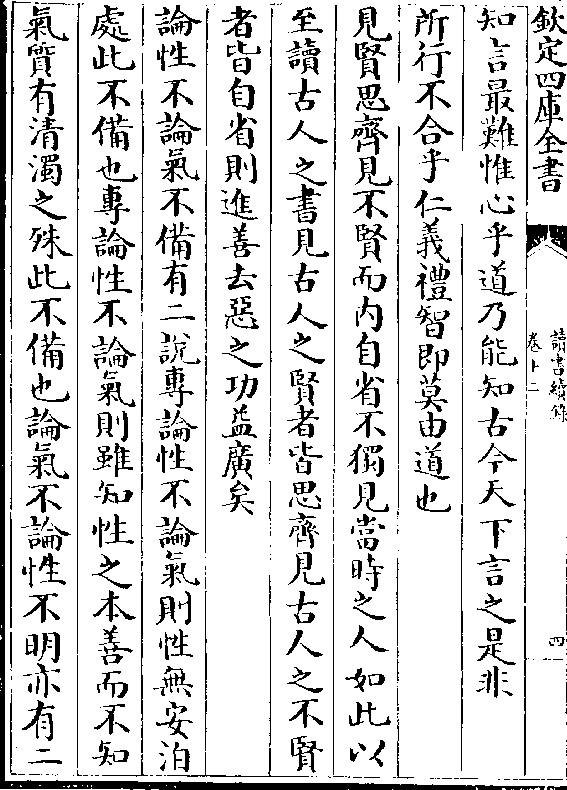 欽定四庫全書
讀書續錄
卷十二
四
知言最難惟心乎道乃能知古今天下言之是非
所行不合乎仁義禮智即莫由道也
見賢思齊見不賢而内自省不獨見當時之人如此以
至讀古人之書見古人之賢者皆思齊見古人之不賢
者皆自省則進善去惡之功益廣矣
論性不論氣不備有二說專論性不論氣則性無安泊
處此不備也專論性不論氣則雖知性之本善而不知
氣質有清濁之殊此不備也論氣不論性不明亦有二